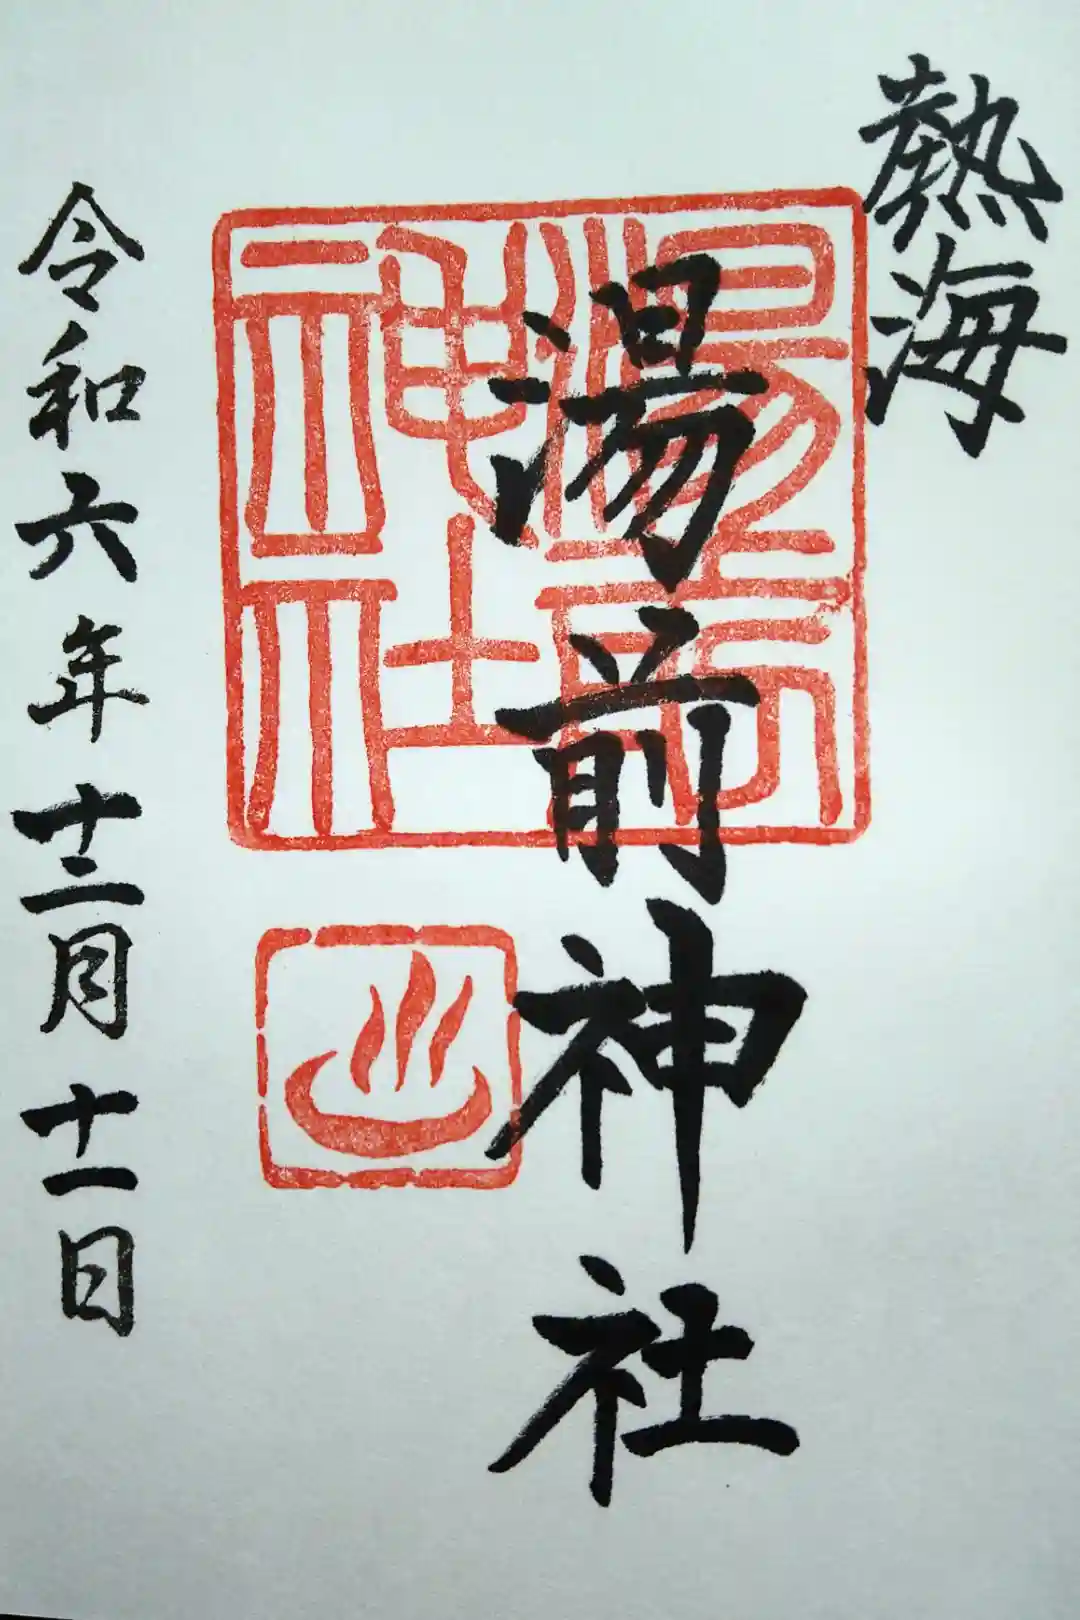 熱海
湯前神社
湯前神社
令和六年十二月十一日